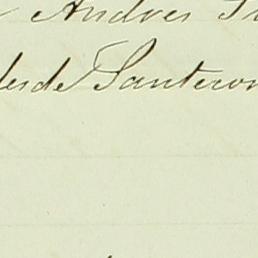 Andres
desde Santecon